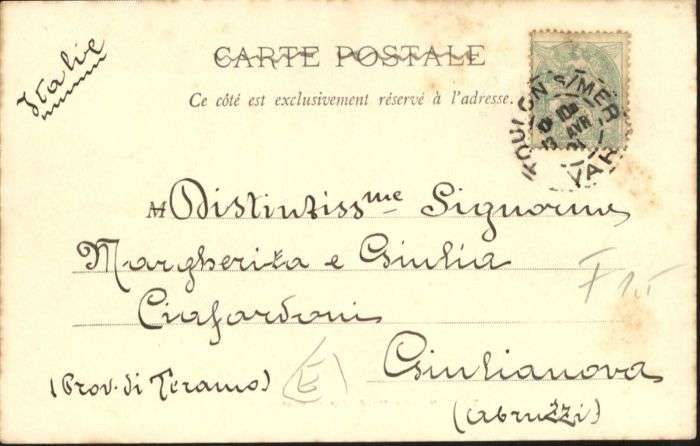 Italie
CARTE POSTALE
Ce côté est exclusivement réservé à l'adresse.
TOULON S/MER
13 AVR
VAR
M Distintissme Signorine
Margherita e Giulia
Ciafardoni
Giulianova
(Prov. di Teramo)
(E)
(Abruzzi)